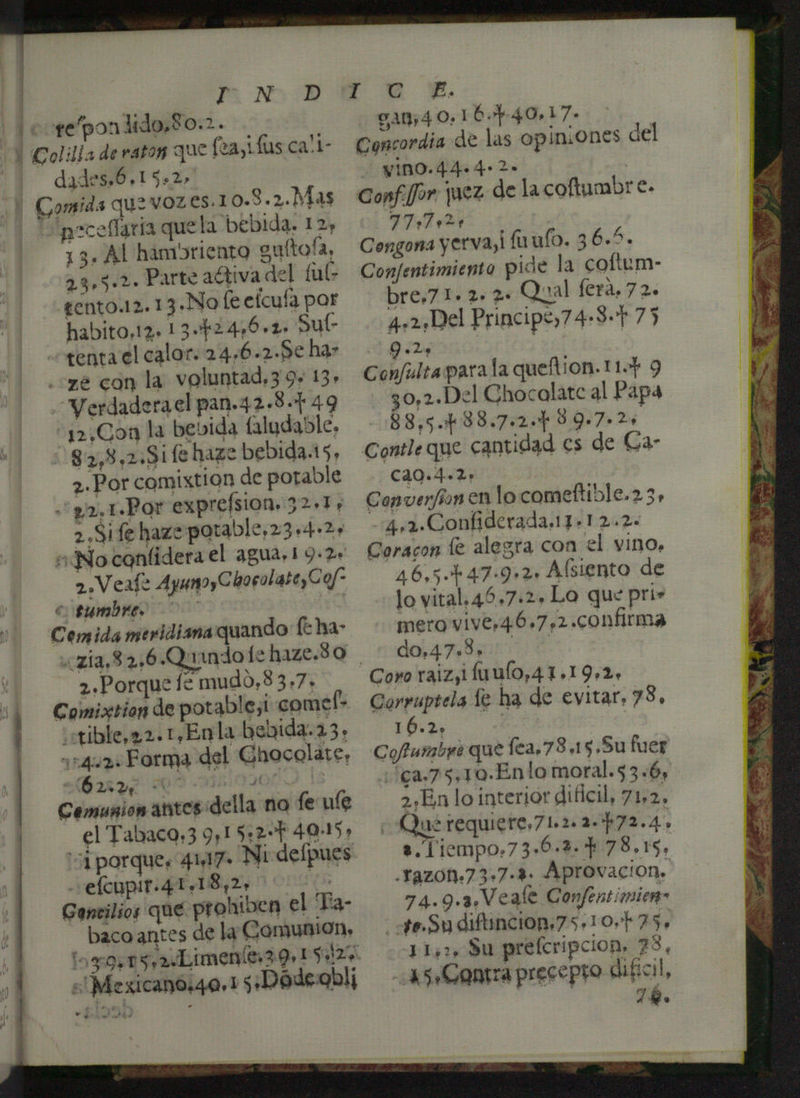 I N D I C E.
respondido,80.2.
Colilla de raton que sea,i sus cali-
dades,6,15.2,
Comida que vozes.10.8.2.Mas
necessaria que la bebida. 12,
13. Al hambriento gustosa,
23,5.2. Parte activa del sus-
tento.12.13.No se escusa por
habito,12.13.†24,6.2. Sus-
tenta el calor. 24,6.2.Se ha-
ze con la voluntad,39. 13,
Verdadera el pan.42.8.† 49
12,Con la bebida saludable,
82,8,2.Si se haze bebida.15,
2.Por comixtion de potable
22.1.Por expression. 32.1,
2,Si se haze potable,23.4.2,
No considera el agua,19.2.
2.Vease Ayuno,Chocolate,Cos-
tumbre.
Comida meridiana quando se ha-
zia,82,6.Quando se haze.80
2.Porque se mudò,83.7.
Comixtion de potable,i comes-
tible,22.1,En la bebida.23,
4.2. Forma del Chocolate,
62.2,
Comunion antes della no se use
el Tabaco,39,15.2.† 40.15,
i porque. 41.17. Ni despues
escupir.41,18,2,
Concilios que prohiben el Ta-
baco antes de la Comunion,
39,15,2.Limense.39,15.2.
Mexicano.40.15.Dōde obli
gan,40,16.†40,17.
Concordia de las opiniones del
vino.44.4.2.
Confessor juez de la costumbre.
77.7.2,
Congona yerva,i su uso. 36.5.
Consentimiento pide la costum-
bre,71. 2. 2. Qual serà, 72.
4.2,Del Principe,74.8.† 75
9.2,
Consulta para la question.11.† 9
30,2.Del Chocolate al Papa
88,5.† 88.7.2.† 89.7.2,
Contle que cantidad es de Ca-
cao.4.2,
Conversion en lo comestible.23,
4,2.Considerada,11.12.2.
Coraçon se alegra con el vino,
46,5.† 47.9.2, Assiento de
lo vital,46,7.2, Lo que pri-
mero vive,46,7,2.confirma
do,47.8,
Coro raiz,i su uso,41,19,2,
Corruptela se ha de evitar, 78,
16.2,
Costumbre que sea,78.15.Su fuer
ça.75,10.En lo moral.53.6,
2,En lo interior dificil, 71,2,
Que requiere,71.2. 2.†72.4.
2.Tiempo,73.6.2. † 78.15,
razon,73.7.2. Aprovacion,
74.9.2,Vease Consentimien-
to.Su distincion,75,10,† 75,
11,2, Su prescripcion, 78,
15,Contra precepto dificil,